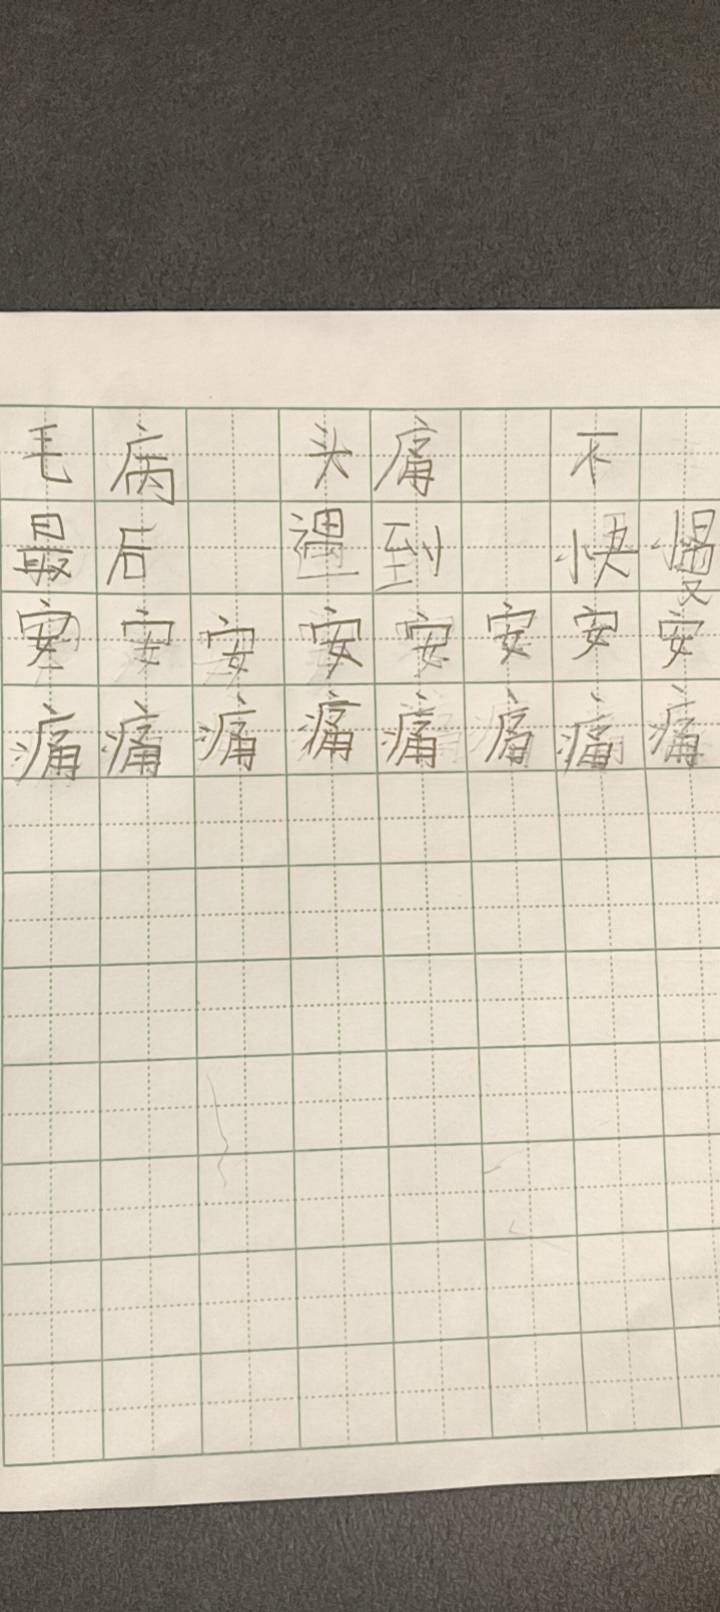 毛病 头痛 不
最后 遇到 快慢
安安安安安安安安
痛痛痛痛痛痛痛痛